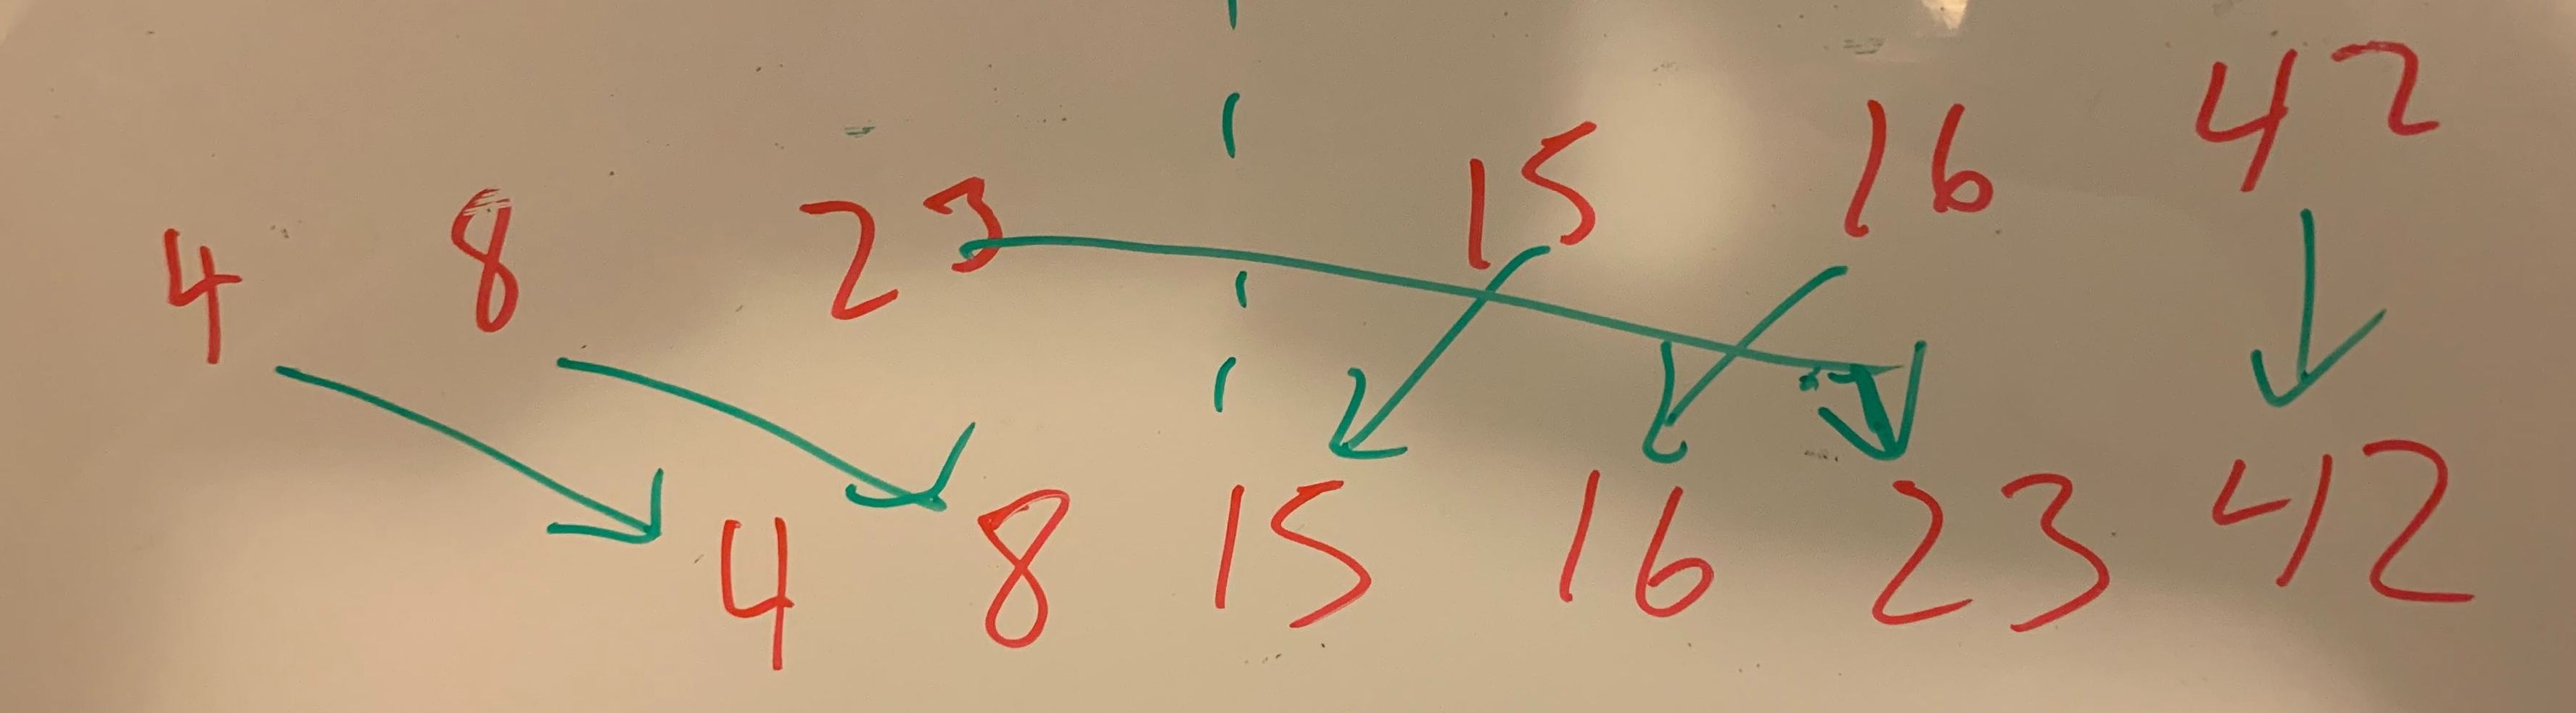 4 8 23 15 16 42
4 8 15 16 23 42